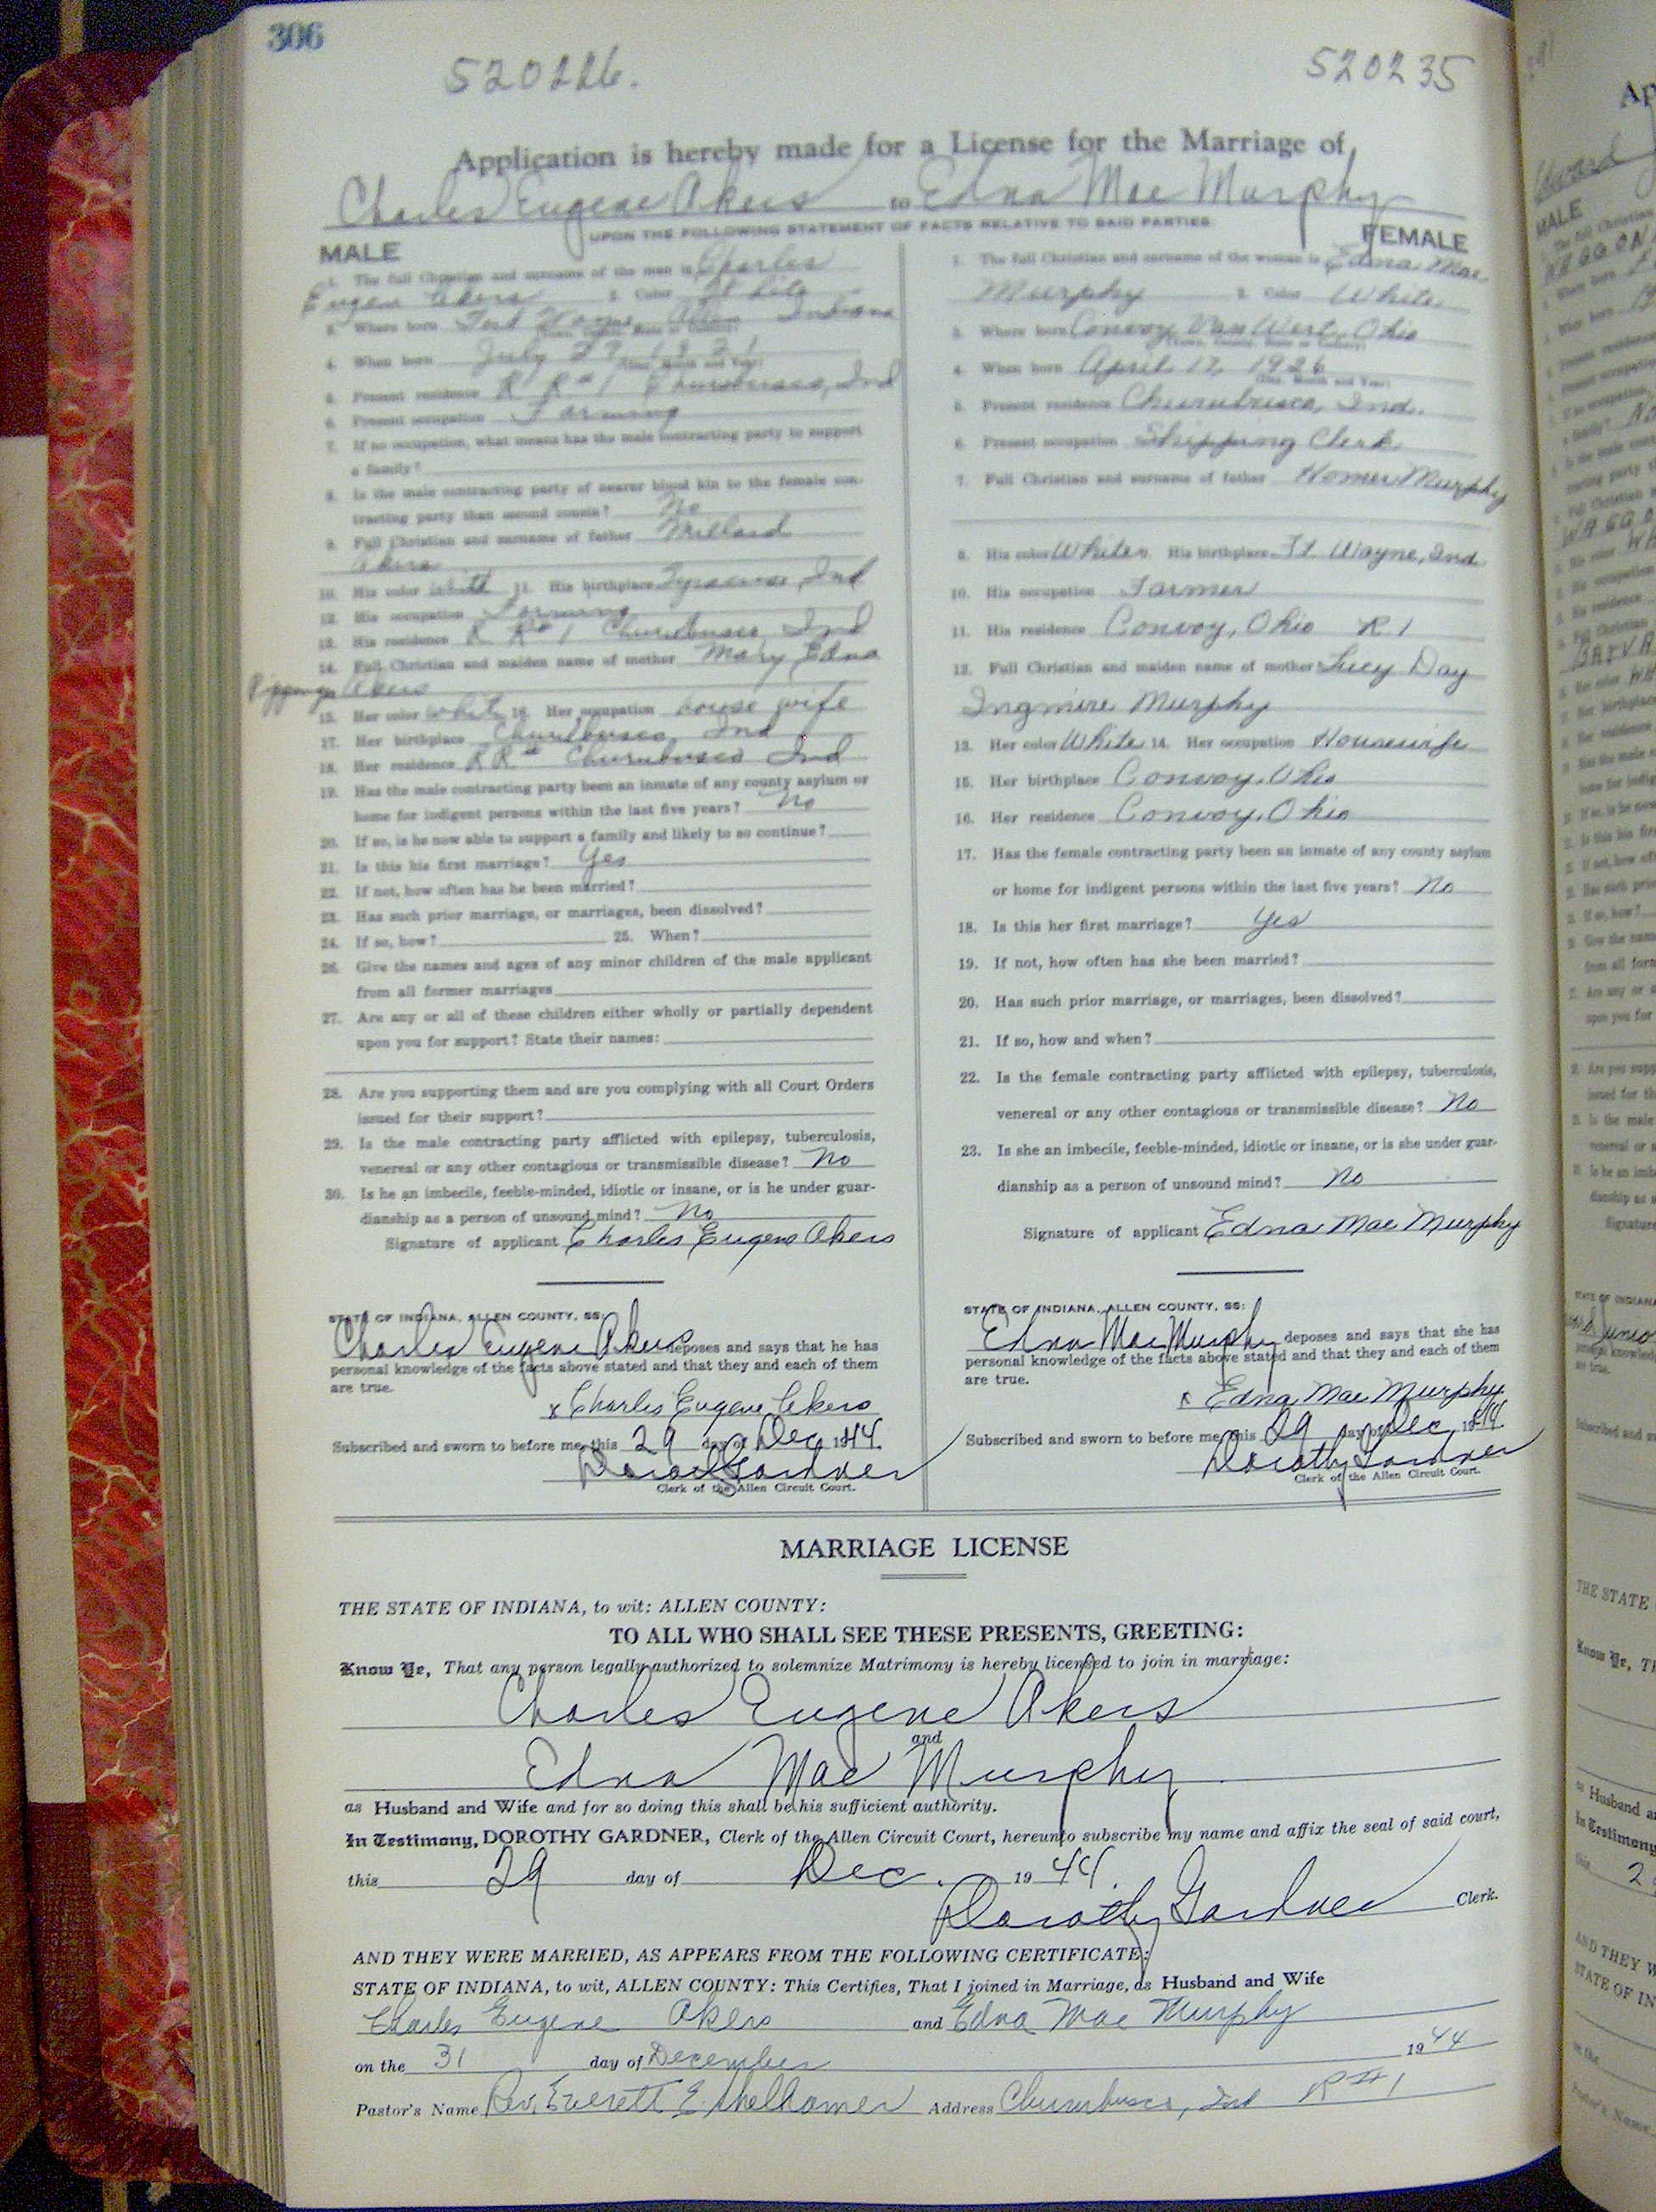 306
520226. 520235
Application is hereby made for a License for the Marriage of
Charles Eugene Akers to Edna Mae Murphy
UPON THE FOLLOWING STATEMENT OF FACTS RELATIVE TO SAID PARTIES
MALE
1. The full Christian and surname of the man is Charles
Eugene Akers 2. Color White
3. Where born Fort Wayne Allen Indiana
(Town, County, State or Country)
4. When born July 29 1921
(Day, Month and Year)
5. Present residence R R #1 Churubusco, Ind
6. Present occupation Farming
7. If no occupation, what means has the male contracting party to support
a family?
8. Is the male contracting party of nearer blood kin to the female con-
tracting party than second cousin? No
9. Full Christian and surname of father Millard
Akers
10. His color White 11. His birthplace Syracuse, Ind
12. His occupation Farming
13. His residence R R #1 Churubusco, Ind
14. Full Christian and maiden name of mother Mary Edna
Akers
15. Her color White 16. Her occupation house wife
17. Her birthplace Churubusco, Ind
18. Her residence RR # Churubusco Ind
19. Has the male contracting party been an inmate of any county asylum or
home for indigent persons within the last five years? No
20. If so, is he now able to support a family and likely to so continue?
21. Is this his first marriage? Yes
22. If not, how often has he been married?
23. Has such prior marriage, or marriages, been dissolved?
24. If so, how? 25. When?
26. Give the names and ages of any minor children of the male applicant
from all former marriages
27. Are any or all of these children either wholly or partially dependent
upon you for support? State their names:
28. Are you supporting them and are you complying with all Court Orders
issued for their support?
29. Is the male contracting party afflicted with epilepsy, tuberculosis,
venereal or any other contagious or transmissible disease? No
30. Is he an imbecile, feeble-minded, idiotic or insane, or is he under guar-
dianship as a person of unsound mind? No
Signature of applicant Charles Eugene Akers
STATE OF INDIANA, ALLEN COUNTY, SS:
Charles Eugene Akers deposes and says that he has
personal knowledge of the facts above stated and that they and each of them
are true.
x Charles Eugene Akers
Subscribed and sworn to before me, this 29 day of Dec 1944.
Dorothy Gardner
Clerk of the Allen Circuit Court.
FEMALE
1. The full Christian and surname of the woman is Edna Mae
Murphy 2. Color White
3. Where born Convoy Van Wert, Ohio
(Town, County, State or Country)
4. When born April 17, 1926
(Day, Month and Year)
5. Present residence Churubusco, Ind.
6. Present occupation Shipping Clerk
7. Full Christian and surname of father Homer Murphy
8. His color White 9. His birthplace Ft. Wayne, Ind
10. His occupation Farmer
11. His residence Convoy, Ohio R. 1
12. Full Christian and maiden name of mother Lucy Day
Ingmire Murphy
13. Her color White 14. Her occupation Housewife
15. Her birthplace Convoy, Ohio
16. Her residence Convoy, Ohio
17. Has the female contracting party been an inmate of any county asylum
or home for indigent persons within the last five years? No
18. Is this her first marriage? Yes
19. If not, how often has she been married?
20. Has such prior marriage, or marriages, been dissolved?
21. If so, how and when?
22. Is the female contracting party afflicted with epilepsy, tuberculosis,
venereal or any other contagious or transmissible disease? No
23. Is she an imbecile, feeble-minded, idiotic or insane, or is she under guar-
dianship as a person of unsound mind? No
Signature of applicant Edna Mae Murphy
STATE OF INDIANA, ALLEN COUNTY, SS:
Edna Mae Murphy deposes and says that she has
personal knowledge of the facts above stated and that they and each of them
are true.
x Edna Mae Murphy
Subscribed and sworn to before me, this 29 day of Dec 1944.
Dorothy Gardner
Clerk of the Allen Circuit Court.
MARRIAGE LICENSE
THE STATE OF INDIANA, to wit: ALLEN COUNTY:
TO ALL WHO SHALL SEE THESE PRESENTS, GREETING:
Know Ye, That any person legally authorized to solemnize Matrimony is hereby licensed to join in marriage:
Charles Eugene Akers
and
Edna Mae Murphy
as Husband and Wife and for so doing this shall be his sufficient authority.
In Testimony, DOROTHY GARDNER, Clerk of the Allen Circuit Court, hereunto subscribe my name and affix the seal of said court,
this 29 day of Dec. 1944.
Dorothy Gardner Clerk.
AND THEY WERE MARRIED, AS APPEARS FROM THE FOLLOWING CERTIFICATE:
STATE OF INDIANA, to wit, ALLEN COUNTY: This Certifies, That I joined in Marriage, as Husband and Wife
Charles Eugene Akers and Edna Mae Murphy
on the 31 day of December 1944
Pastor's Name Rev. Everett E. Shelhamer Address Churubusco, Ind R#1